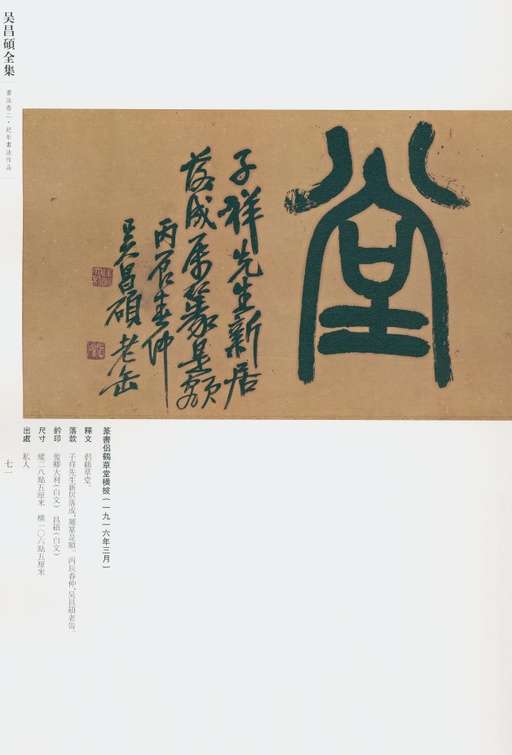 吴昌碩全集
書法卷二·紀年書法作品
堂
子祥先生新居
落成屬篆是額
丙辰春仲
吴昌碩老缶
篆書侣鶴草堂横披(一九一六年三月)
釋文 侣鶴草堂。
落款 子祥先生新居落成,屬篆是額。丙辰春仲,吴昌碩老缶。
鈐印 俊卿大利(白文) 昌碩(白文)
尺寸 縱二八點五厘米 横一〇六點五厘米
出處 私人
七一